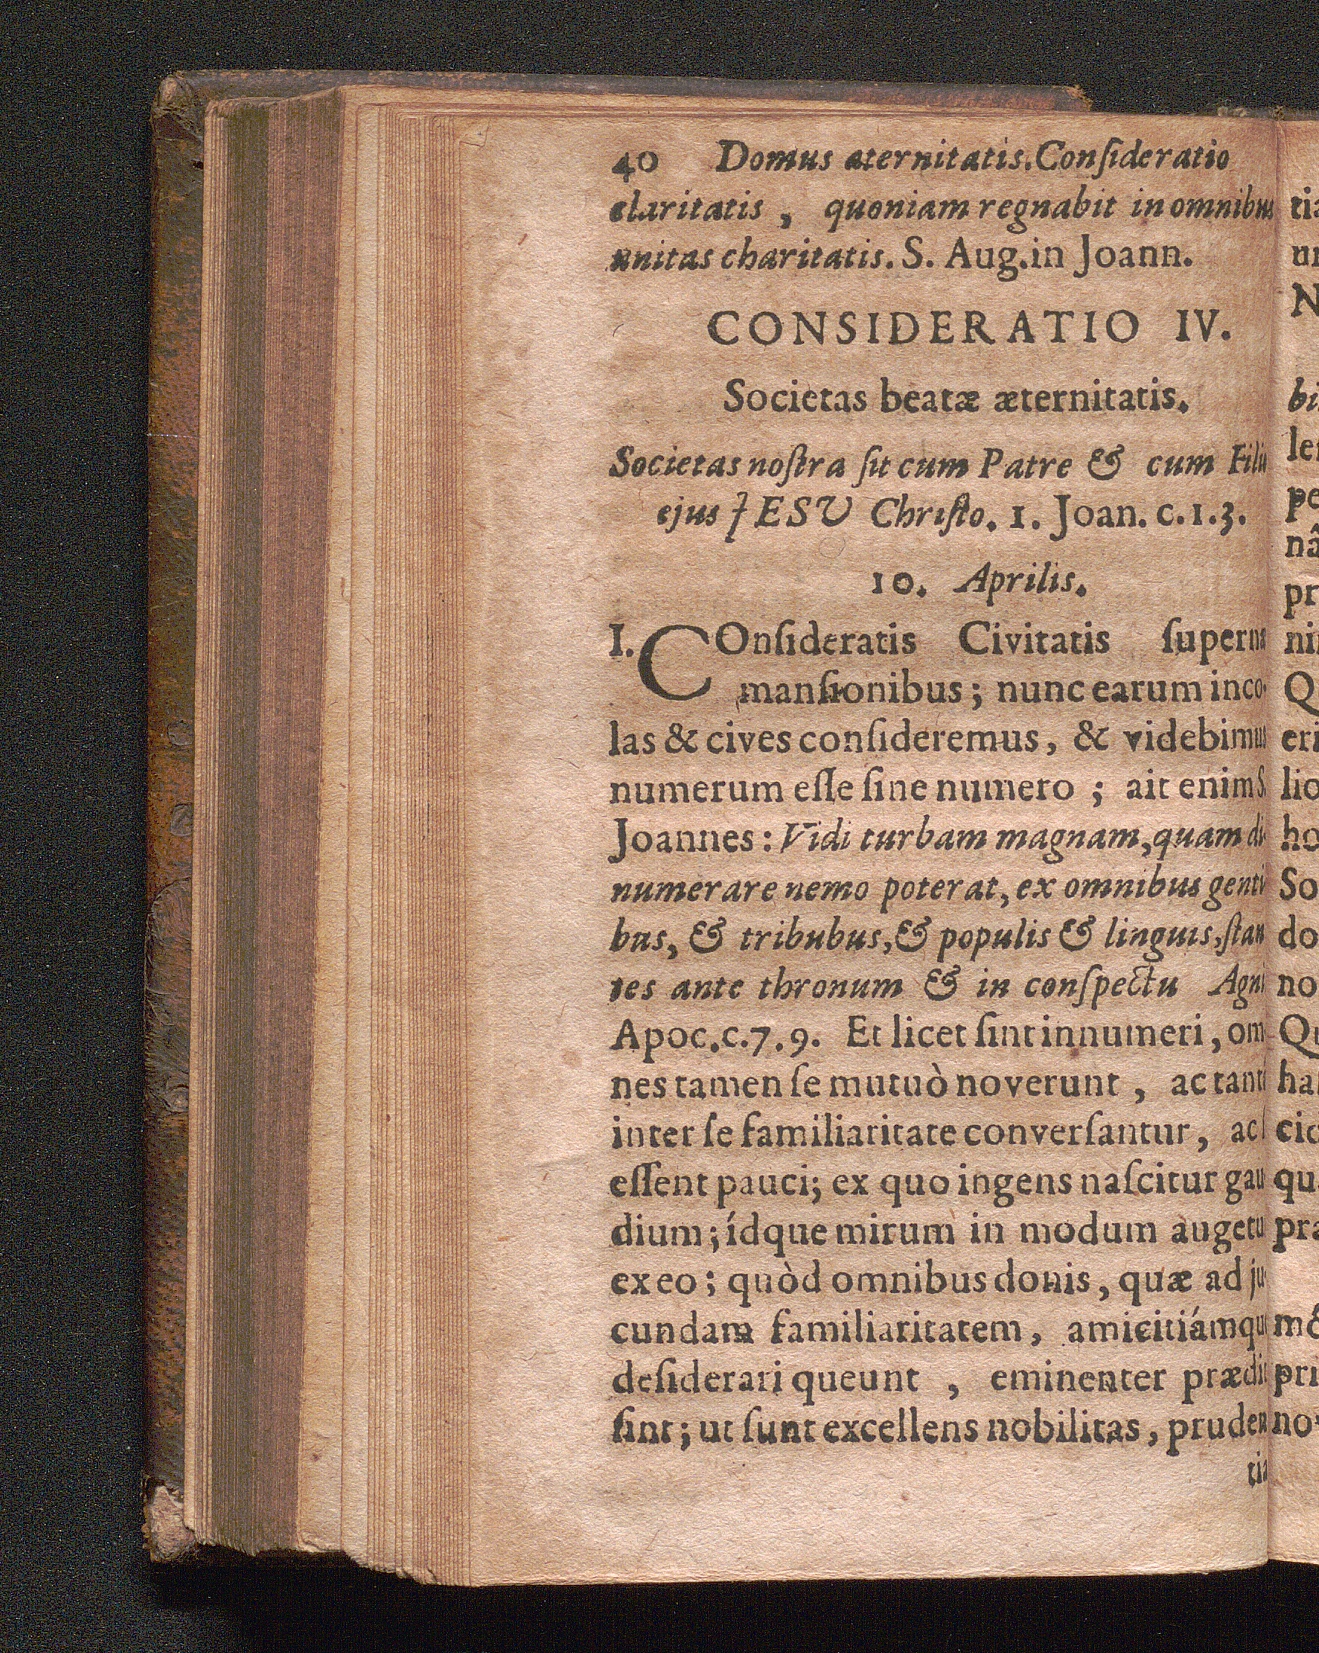 40 Domus æternitatis. Conſideratio
claritatis, quoniam regnabit in omnibus
unitas charitatis. S. Aug. in Joann.
CONSIDERATIO IV.
Societas beatæ æternitatis.
Societas noſtra ſit cum Patre & cum Filio
ejus JESU Chriſto. 1. Joan. c. 1. 3.
10. Aprilis.
I. COnſideratis Civitatis ſupernæ
manſionibus; nunc earum inco-
las & cives conſideremus, & videbimus
numerum eſſe ſine numero; ait enim S.
Joannes: Vidi turbam magnam, quam di-
numerare nemo poterat, ex omnibus genti
bus, & tribubus, & populis & linguis, ſtan
tes ante thronum & in conſpectu Agni
Apoc. c. 7. 9. Et licet ſint innumeri, om-
nes tamen ſe mutuò noverunt, ac tanta
inter ſe familiaritate converſantur, ac
eſſent pauci; ex quo ingens naſcitur gau
dium; ídque mirum in modum augetu
ex eo; quòd omnibus donis, quæ ad ju-
cundam familiaritatem, amicitiámque
deſiderari queunt, eminenter prædi
ſint; ut ſunt excellens nobilitas, pruden
tia